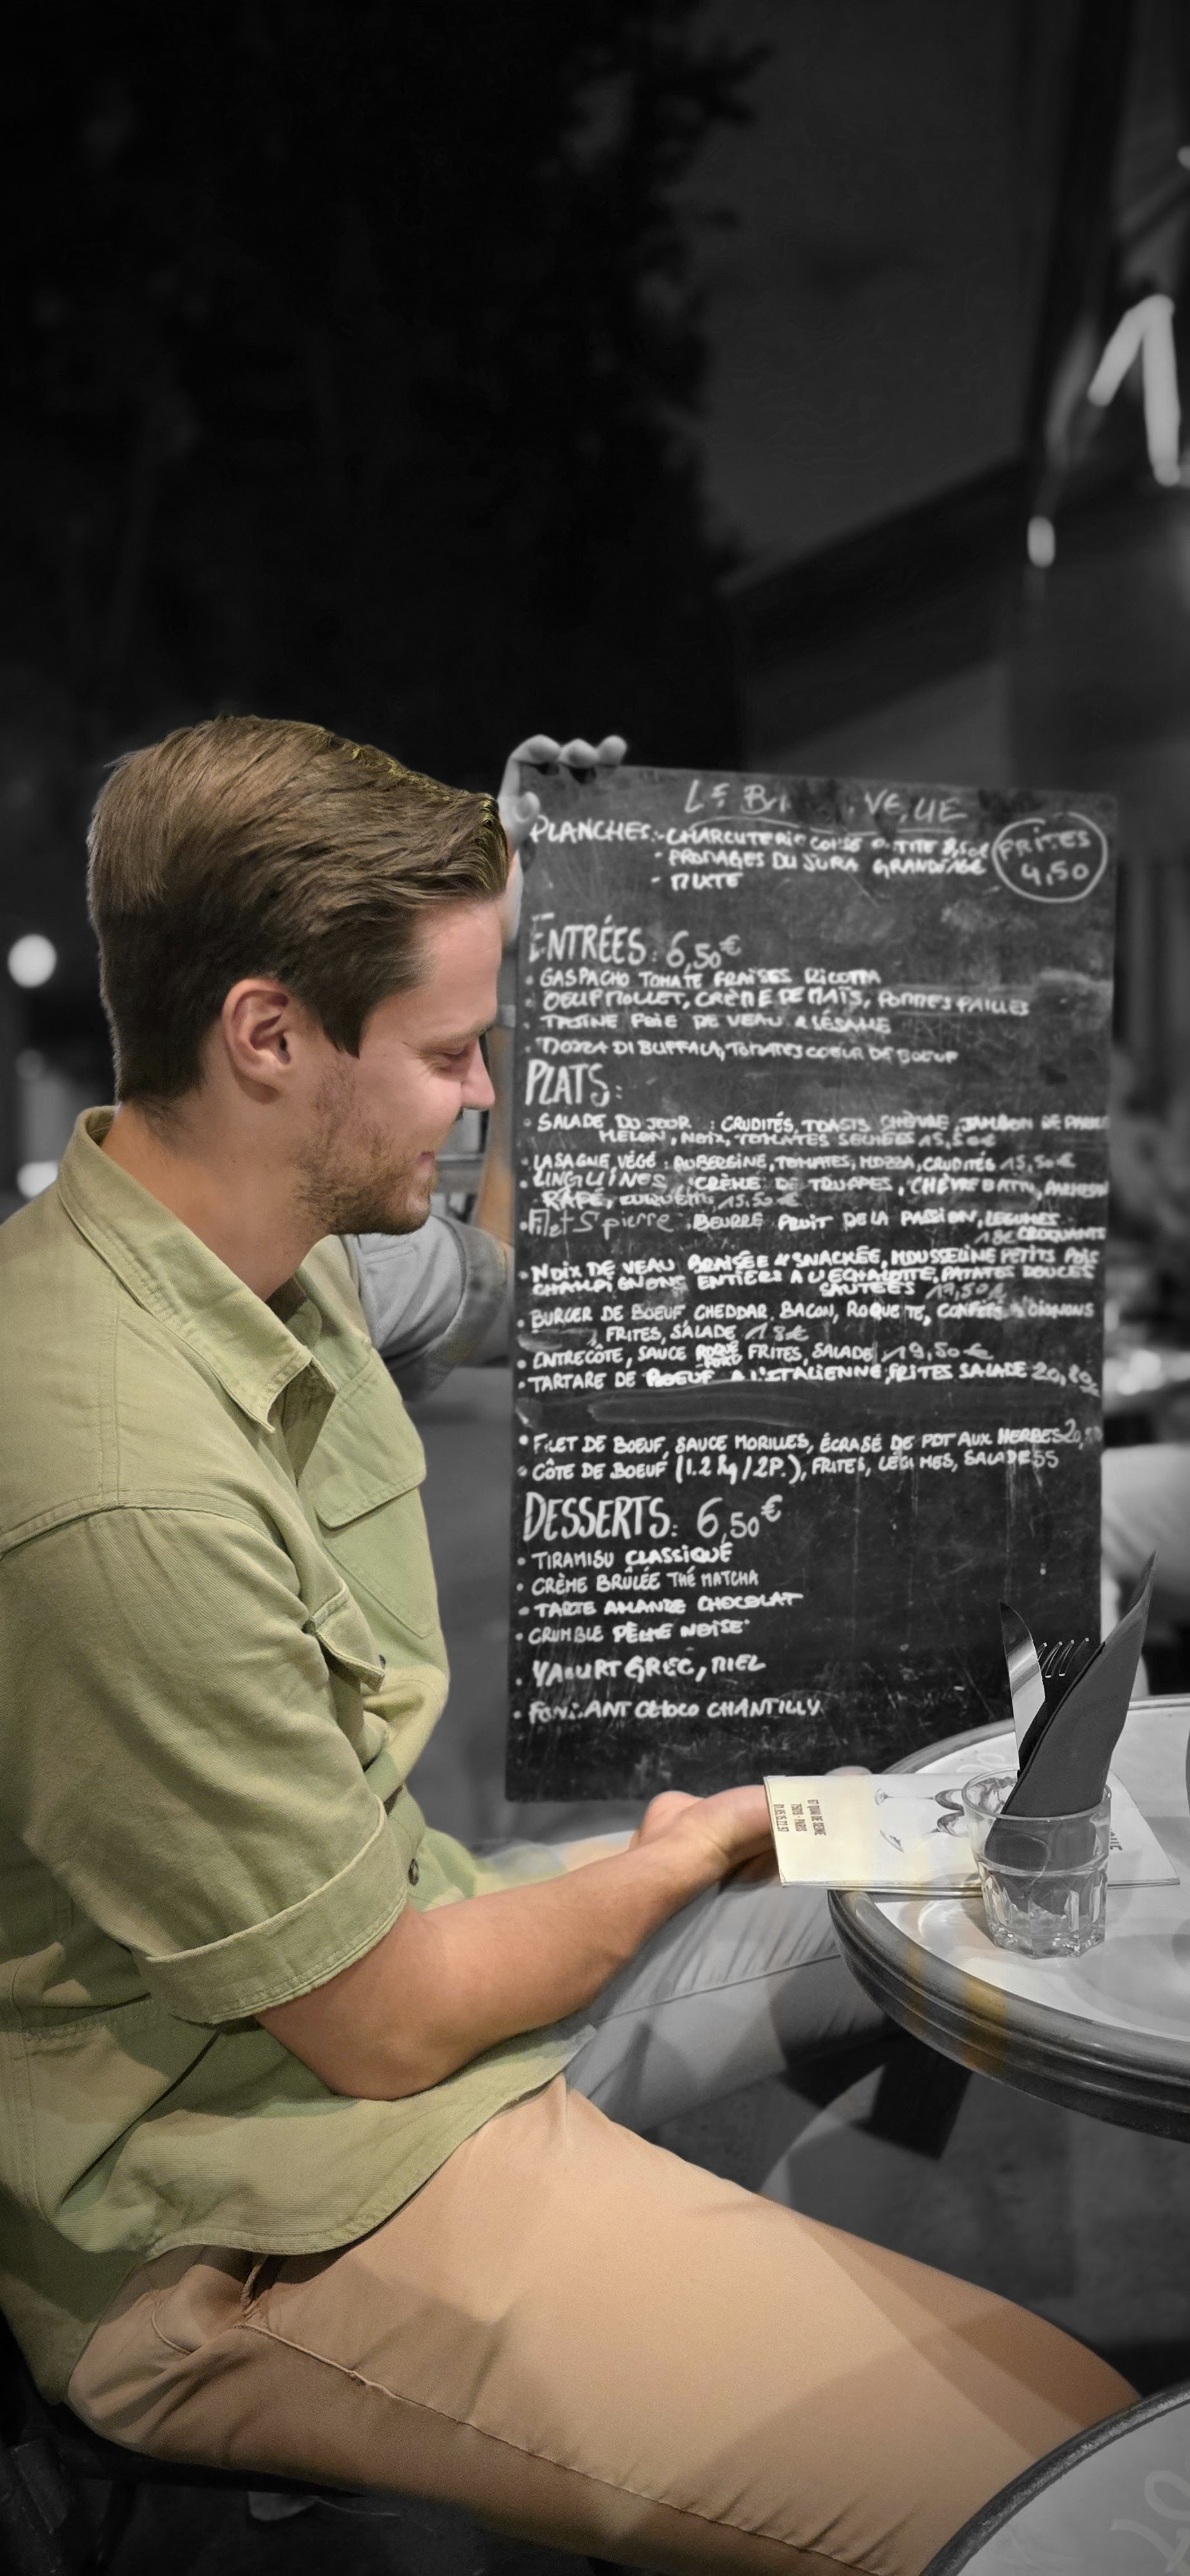 PLANCHES: - CHARCUTERIE 8,50€
- FROMAGES DU JURA GRANDE
- MIXTE
FRITES
4,50
ENTRÉES: 6,50€
• GASPACHO TOMATE FRAISES RICOTTA
• OEUF MOLLET, CRÈME DE MAÏS, POMMES PAILLES
• TERRINE FOIE DE VEAU & SÉSAME
• MOZZA DI BUFFALA, TOMATES COEUR DE BOEUF
PLATS:
• SALADE DU JOUR : CRUDITÉS, TOASTS CHÈVRE, JAMBON DE
MELON, NOIX, TOMATES SECHÉES 15,50€
• LASAGNE VÉGÉ : AUBERGINE, TOMATES, MOZZA, CRUDITÉS 15,50€
• LINGUINES CRÈME DE TRUFFES, CHÈVRE BATTU, PARMESAN
RAPÉ, 15.50€
• Filet St pierre, BEURRE FRUIT DE LA PASSION, LEGUMES
18€ CROQUANTS
• NOIX DE VEAU BRAISÉE & SNACKÉE, MOUSSELINE PETITS POIS
CHAMPIGNONS ENTIERS A L'ECHALOTTE, PATATES DOUCES
SAUTEES 19,50€
• BURGER DE BOEUF, CHEDDAR, BACON, ROQUETTE, CONFIT D'OIGNONS
FRITES, SALADE 18€
• ENTRECÔTE, SAUCE ROQUEFORT, FRITES, SALADE 19,50€
• TARTARE DE BOEUF A L'ITALIENNE, FRITES SALADE
• FILET DE BOEUF, SAUCE MORILLES, ÉCRASÉ DE PDT AUX HERBES
• CÔTE DE BOEUF (1.2 kg / 2P.), FRITES, LÉGUMES, SALADE 55
DESSERTS: 6,50€
• TIRAMISU CLASSIQUE
• CRÈME BRÛLÉE THÉ MATCHA
• TARTE AMANDE CHOCOLAT
• CRUMBLE PÊCHE
• YAOURT GREC, MIEL
• FONDANT CHOCO CHANTILLY
75019 - PARIS